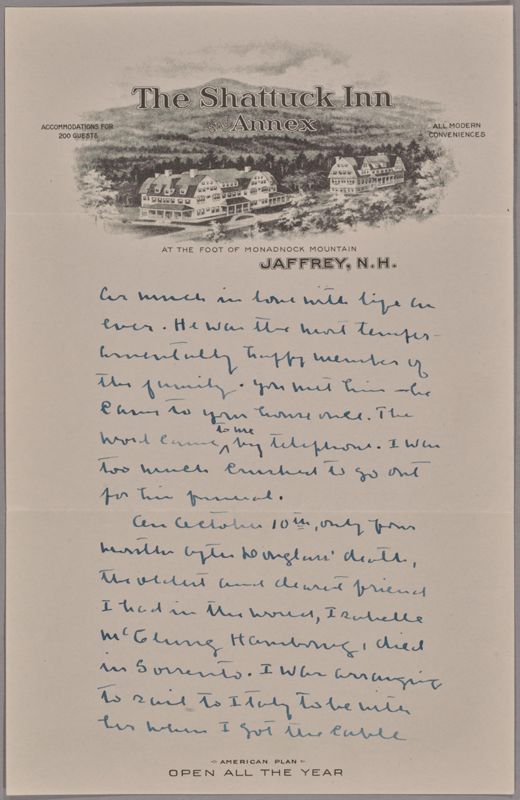 The Shattuck Inn
and Annex
ACCOMMODATIONS FOR
200 GUESTS
ALL MODERN
CONVENIENCES
AT THE FOOT OF MONADNOCK MOUNTAIN
JAFFREY, N.H.
as much in love with life as
ever. He was the most temper-
amentally happy member of
the family. You met him - he
came to your house once. The
to me
word came by telephone. I was
too much crushed to go out
for his funeral.
On October 10th, only four
months after Douglass' death,
the oldest and dearest friend
I had in the world, Isabelle
McClung Hambourg, died
in Sorrento. I was arranging
to sail to Italy to be with
her when I got the cable
AMERICAN PLAN
OPEN ALL THE YEAR